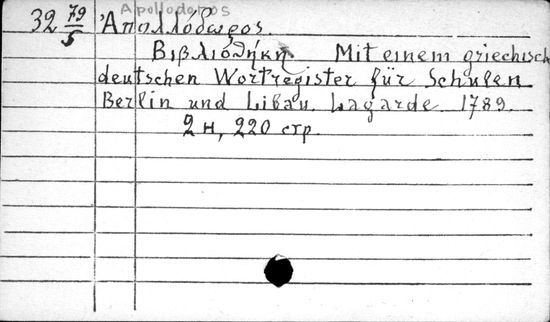 Apollodoros
32 79/5 Ἀπολλόδωρος.
Βιβλιοθήκη. Mit einem griechisch
deutschen Wortregister für Schulen
Berlin und Libau. Lagarde 1789.
2 н, 220 стр.